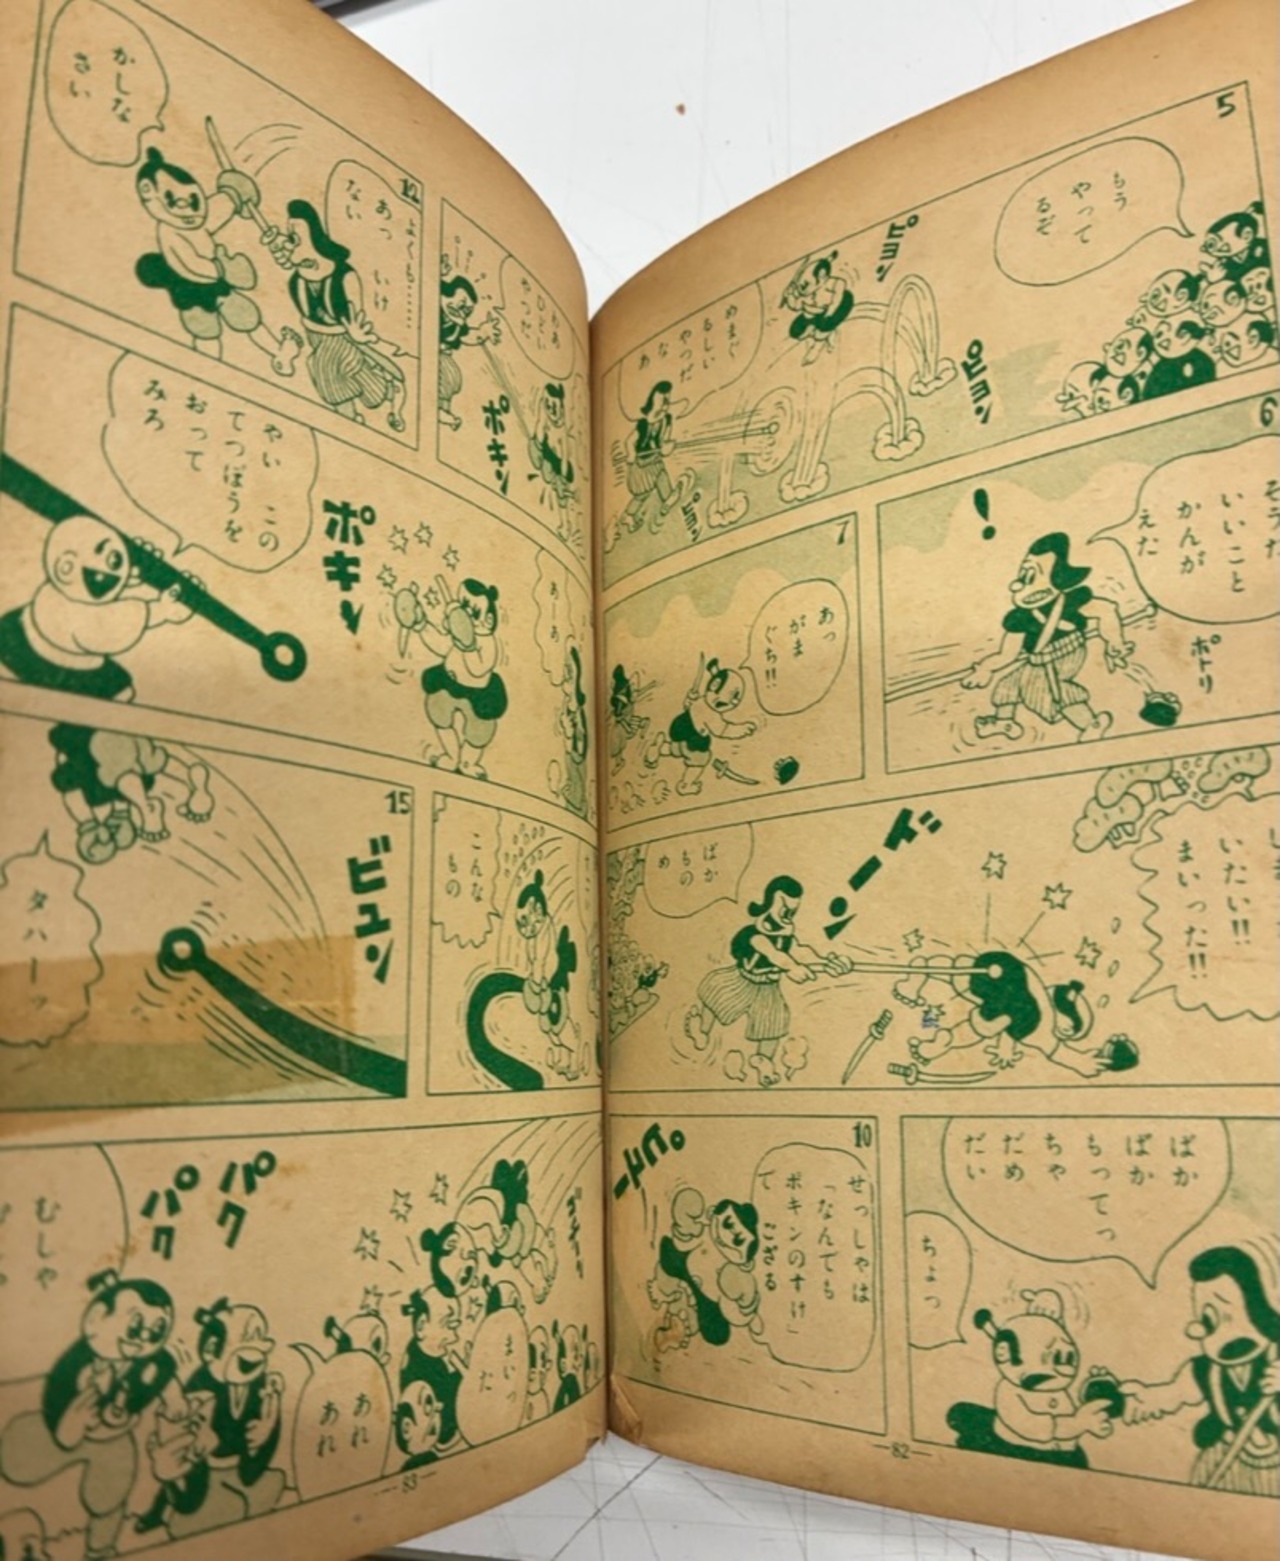 5
もう
やって
るぞ
ピョン
ピョン
ピョン
めまぐ
るしい
やつだ
なあ
6
そうだ
いいこと
かんが
えた
!
ポトリ
7
あっ
がま
ぐち!!
いたい!!
まいった!!
ズーン
ばか
もの
め
ばか
ばか
もってっ
ちゃ
だめ
だい
ちょっ
10
せっしゃは
「なんでも
ポキンのすけ」
て
ござる
82
わあ
ひどい
やつだ
ポキン
12
よくも……
あっ いけ
ない
かしな
さい
あーあ
ポキッ
やい この
てつぼうを
おって
みろ
こんな
もの
15
ビュン
タハーッ
まいっ
た
あれ
あれ
パク
パク
むしゃ
83